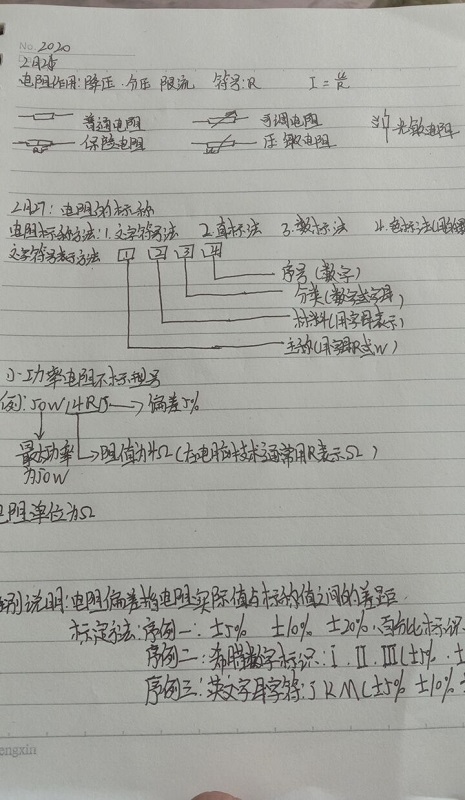 No. 2020
2月2
电阻作用:降压.分压 限流 符号:R I=U/R
普通电阻 可调电阻
光敏电阻
保险电阻 压敏电阻
2月27:电阻的标称
电阻标称方法:1.文字符号法 2.直标法 3.数标法 4.色标法(用的
文字符号表示方法 1 2 3 4
序号(数字)
分类(数字或字母)
材料(用字母表示)
主称(用字母R或W)
小功率电阻不标型号
例:50W 4RJ→偏差5%
最大功率 →阻值为4Ω(在电脑技术通常用R表示Ω)
为50W
电阻单位为Ω
特别说明:电阻偏差指电阻实际值与标称值之间的差距
标定方法:序例一:±5% ±10% ±20%.百分比标识
序例二:希腊数字标识:I.II.III(±5%.±
序例三:英文字母字符:J K M(±5% ±10%
engxin